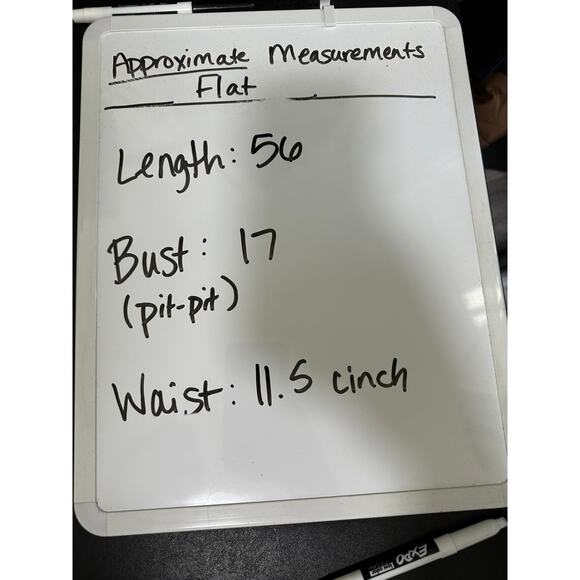 Approximate Measurements
Flat
Length: 56
Bust: 17
(pit-pit)
Waist: 11.5 cinch
EXPO